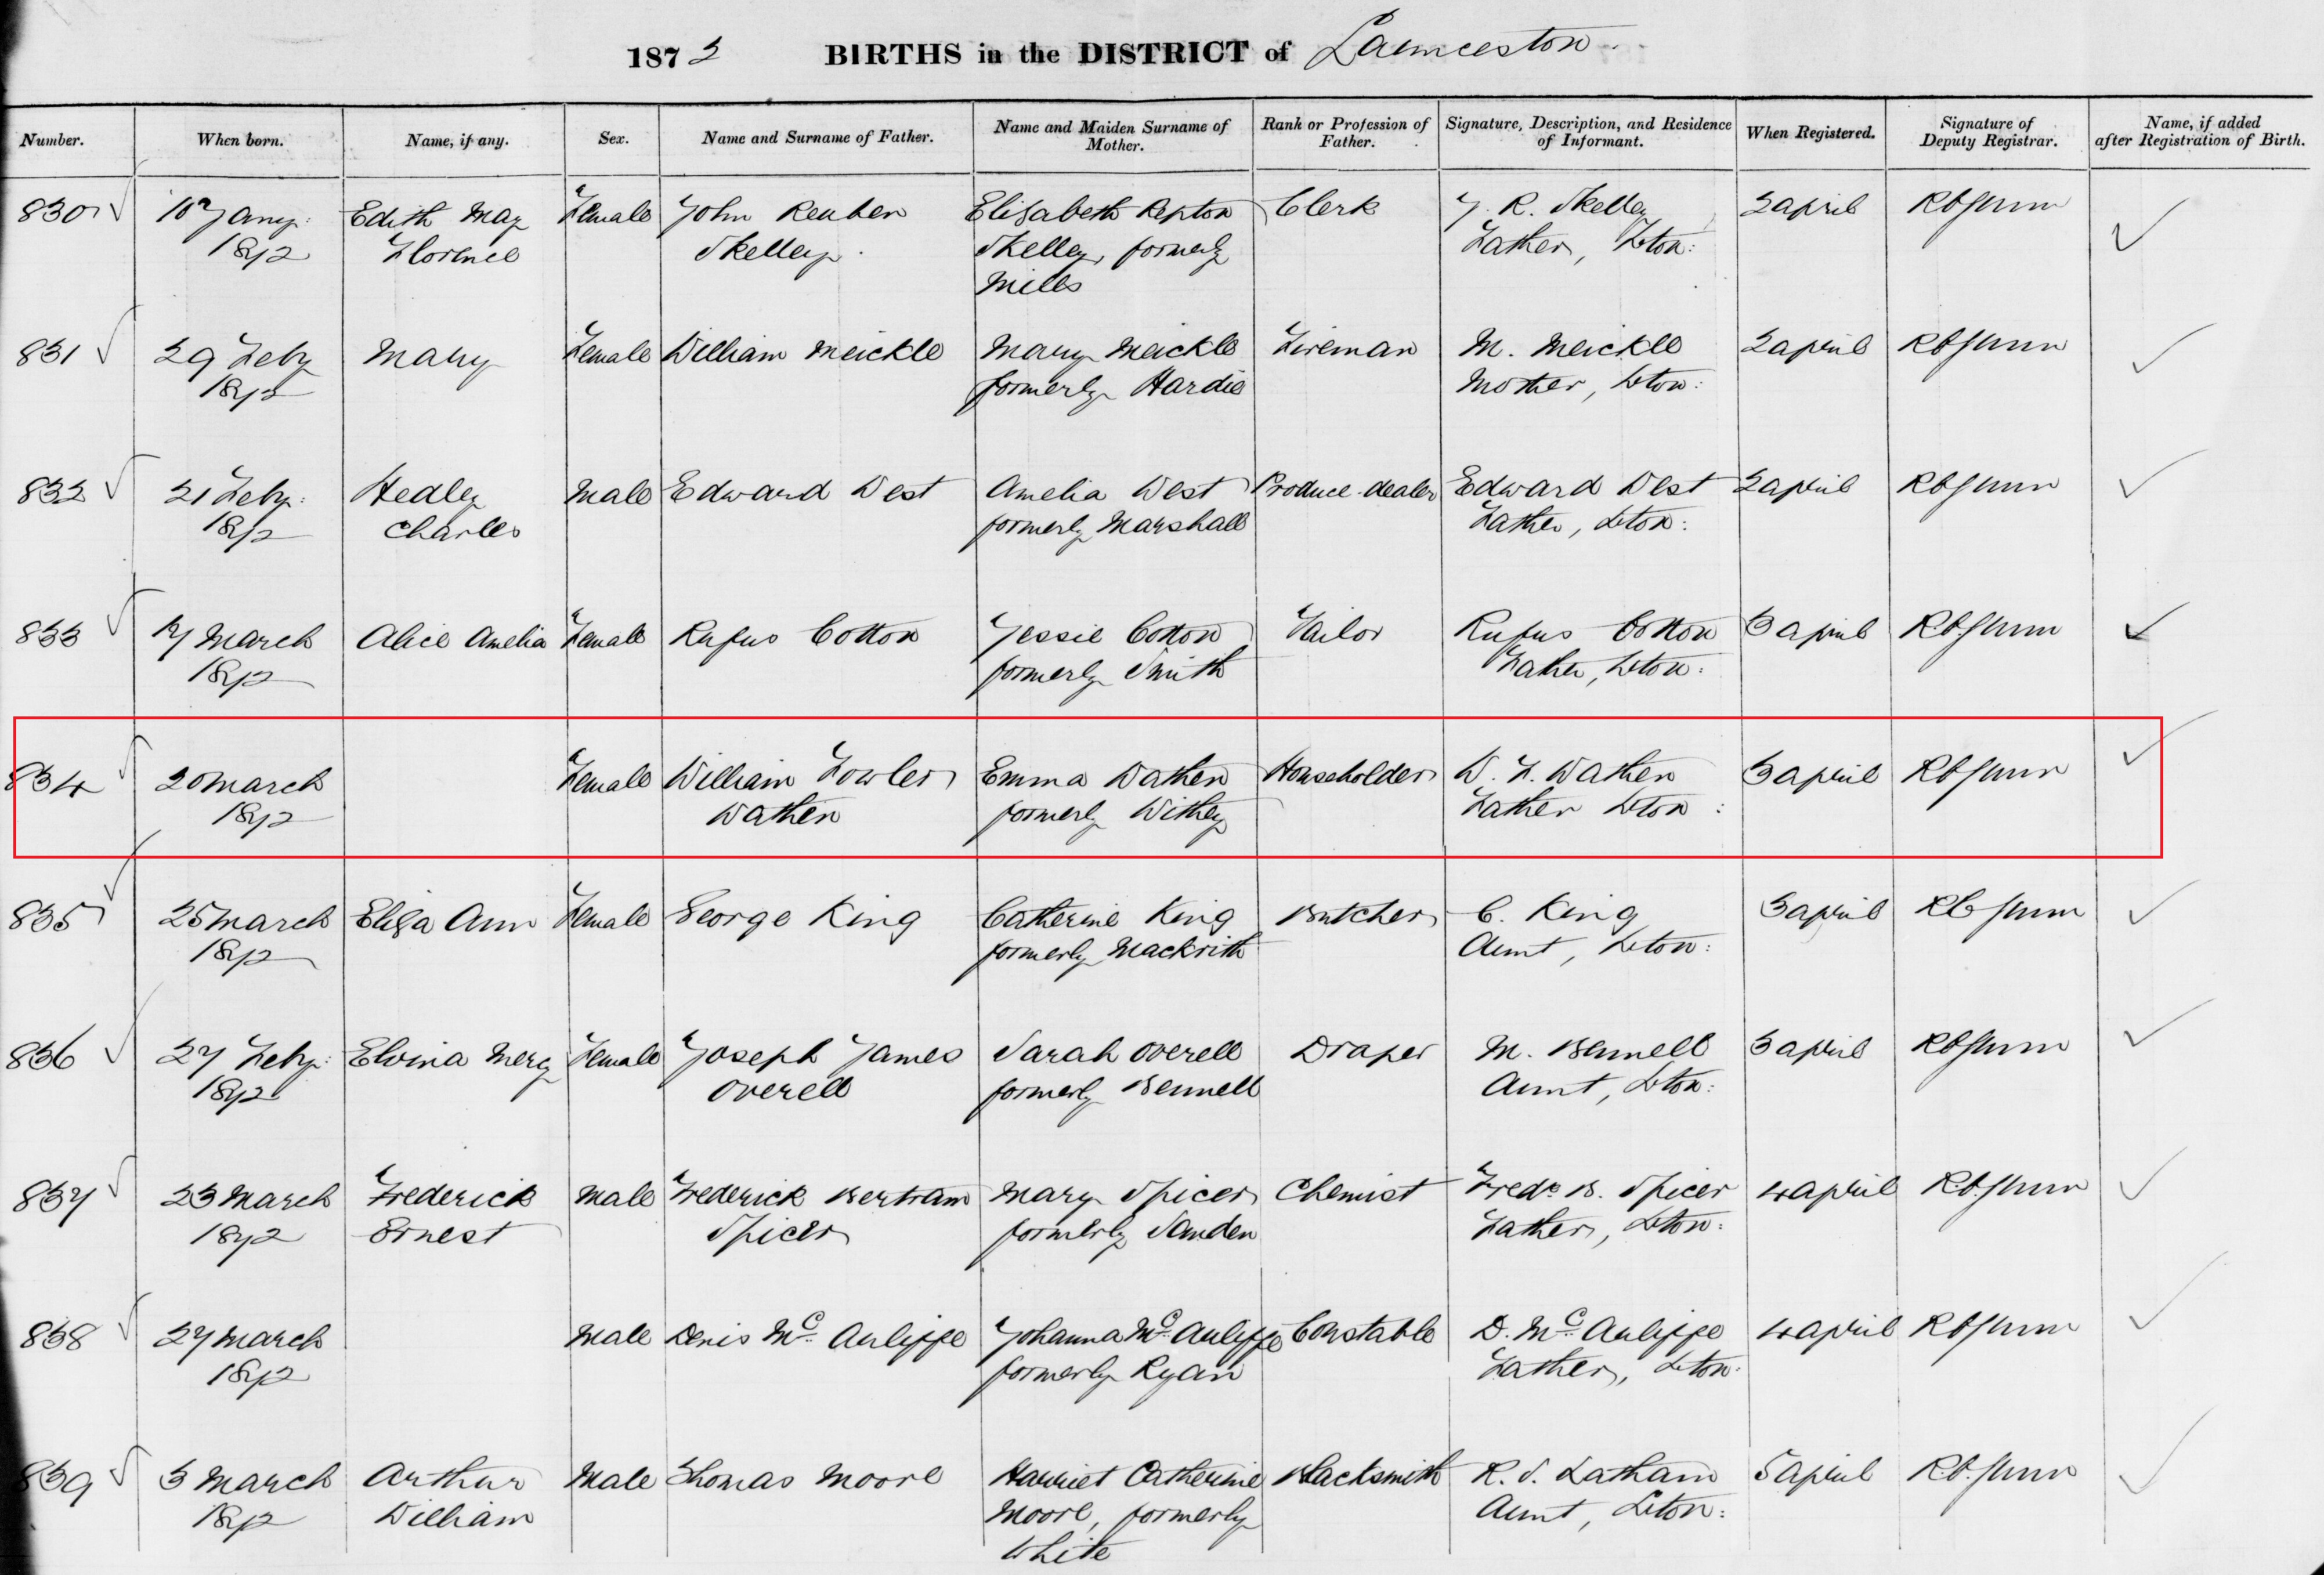 1872 BIRTHS in the DISTRICT of Launceston
Number. When born. Name, if any. Sex. Name and Surname of Father. Name and Maiden Surname of Mother. Rank or Profession of Father. Signature, Description, and Residence of Informant. When Registered. Signature of Deputy Registrar. Name, if added after Registration of Birth.
830 10 Jany: Edith May Female John Reuben Elisabeth Repton Clerk J. R. Skelley 2 April
1872 Florence Skelley Skelley, formerly Father, Lton:
Mills
831 29 Feby Mary Female William Meickle Mary Meickle Fireman M. Meickle 2 April
1872 formerly Hardie Mother, Lton:
832 21 Feby: Hedley Male Edward West Amelia West Produce dealer Edward West 2 April
1872 Charles formerly Marshall Father, Lton:
833 17 March Alice Amelia Female Rufus Cotton Jessie Cotton Tailor Rufus Cotton 3 April
1872 formerly Smith Father, Lton:
834 20 March Female William Fowler Emma Wathen Householder W. F. Wathen 3 April
1872 Wathen formerly Withey Father Lton:
835 25 March Eliza Ann Female George King Catherine King Butcher C. King 3 April
1872 formerly Mackrith Aunt, Lton:
836 27 Feby: Elvina Mercy Female Joseph James Sarah Overell Draper M. Bennell 3 April
1872 Overell formerly Bennell Aunt, Lton:
837 23 March Frederick Male Frederick Bertram Mary Spicer Chemist Fredk B. Spicer 4 April
1872 Ernest Spicer formerly Father, Lton:
838 27 March Male Denis McAuliffe Johanna McAuliffe Constable D. McAuliffe 4 April
1872 formerly Ryan Father, Lton:
839 3 March Arthur Male Thomas Moore Harriet Catherine Blacksmith R. S. Latham 5 April
1872 William Moore, formerly Aunt, Lton:
White